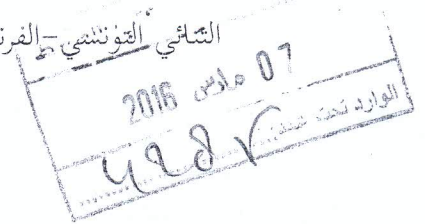 الثنائي التونسي-الفرن
07 مارس 2016
الوارد تحت عدد